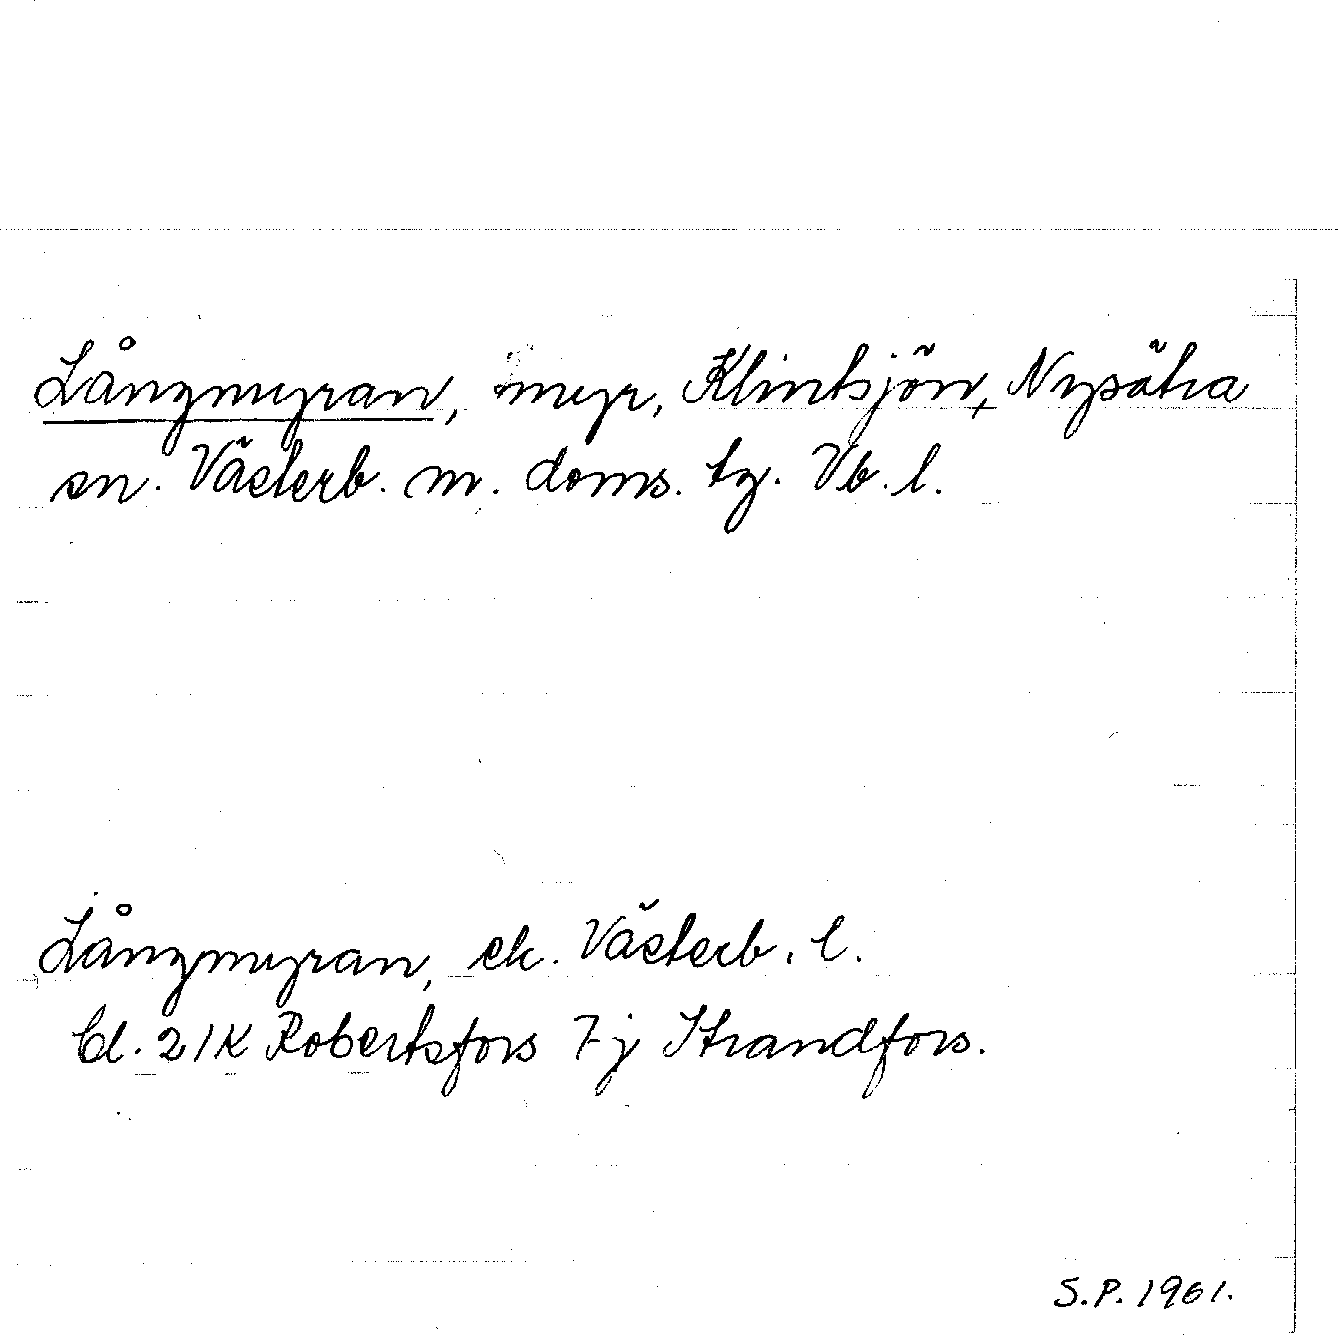 Långmyran, myr, Klintsjön, Nysätra
sn. Västerb. m. doms. tg. Vb. l.
Långmyran, ek. Västerb. l.
bl. 21K Robertsfors 7j Strandfors.
S.P. 1961.